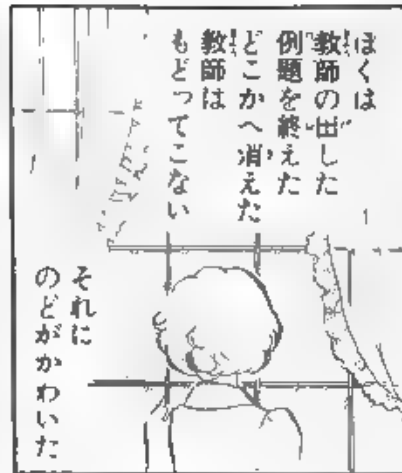 ぼくは
教師の出した
例題を終えた
どこかへ消えた
教師は
もどってこない
それに
のどがかわいた